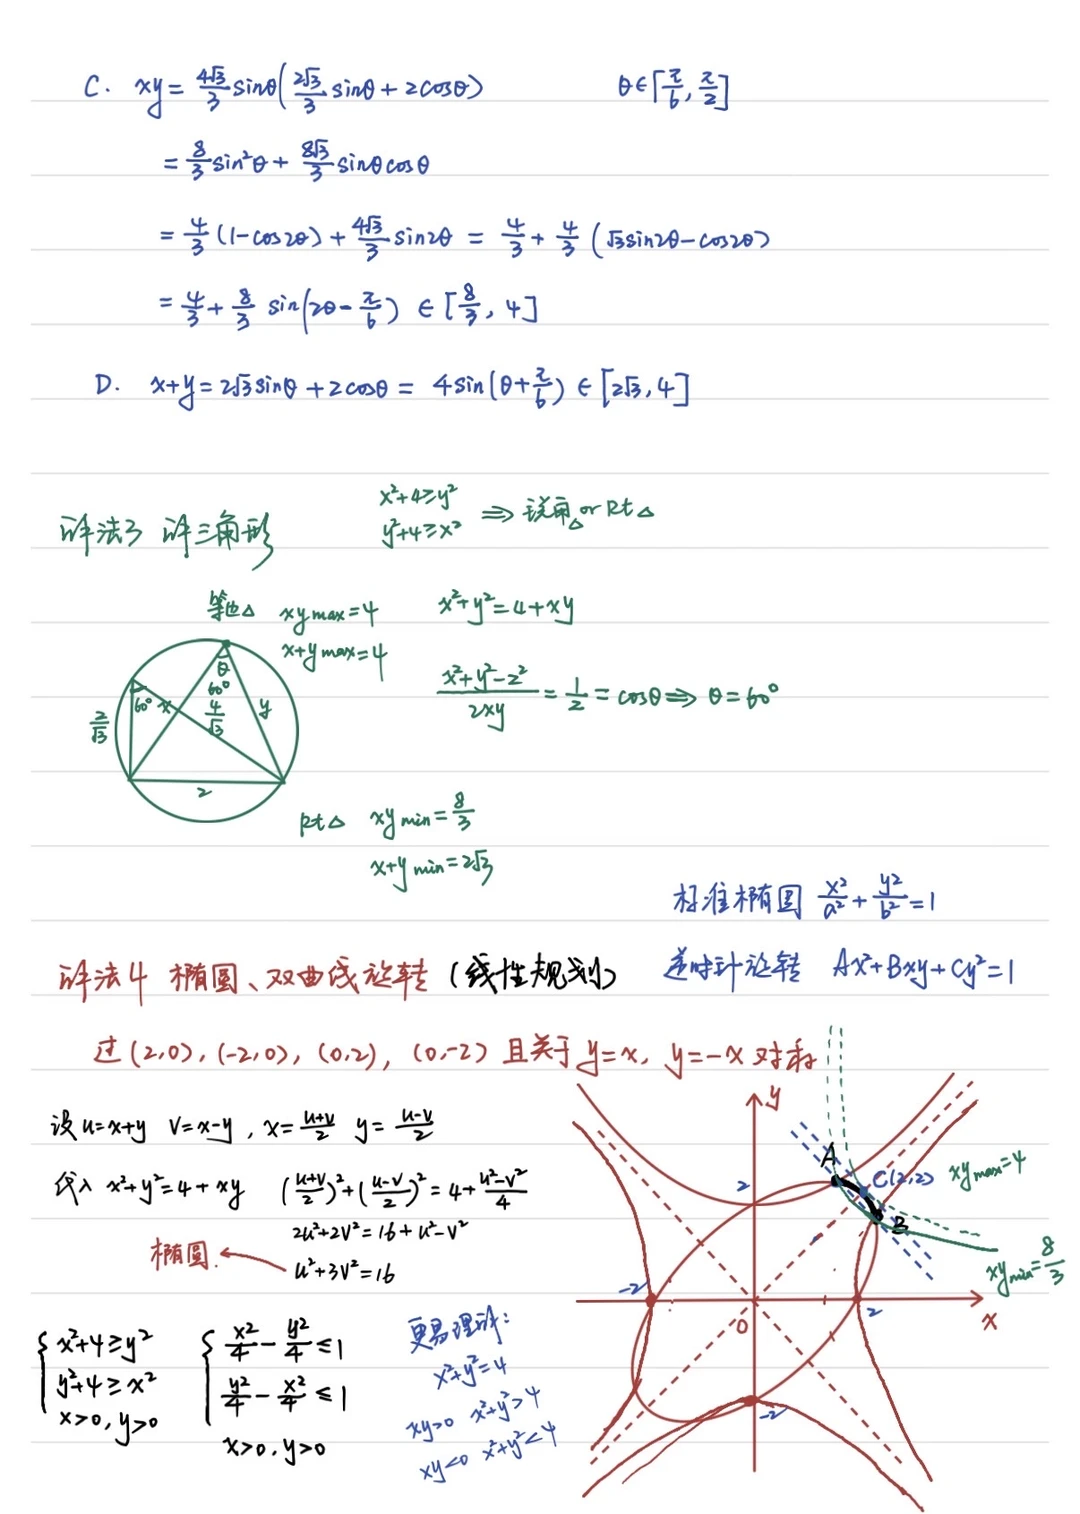 C. xy = 4√3/3 sinθ(2√3/3 sinθ + 2cosθ) θ∈[π/6, π/2]
= 8/3 sin²θ + 8√3/3 sinθcosθ
= 4/3 (1-cos2θ) + 4√3/3 sin2θ = 4/3 + 4/3 (√3sin2θ-cos2θ)
= 4/3 + 8/3 sin(2θ-π/6) ∈ [8/3, 4]
D. x+y = 2√3sinθ + 2cosθ = 4sin(θ+π/6) ∈ [2√3, 4]
x²+4≥y²
y²+4≥x² ⇒ 锐角△ or Rt△
解法3 解三角形
等边△ xy max=4
x+y max=4
x²+y²=4+xy
(x²+y²-z²)/(2xy) = 1/2 = cosθ ⇒ θ=60°
θ
60°
60°
x
4/√3
y
2/√3
2
Rt△ xy min = 8/3
x+y min = 2√3
标准椭圆 x²/a² + y²/b² = 1
逆时针旋转 Ax²+Bxy+Cy²=1
解法4 椭圆、双曲线旋转 (线性规划)
过(2,0), (-2,0), (0,2), (0,-2) 且关于 y=x, y=-x 对称
设 u=x+y v=x-y , x=(u+v)/2 y=(u-v)/2
代入 x²+y²=4+xy ((u+v)/2)²+((u-v)/2)²=4+(u²-v²)/4
2u²+2v²=16+u²-v²
椭圆. ← u²+3v²=16
{ x²+4≥y²
y²+4≥x²
x>0, y>0
{ x²/4 - y²/4 ≤ 1
y²/4 - x²/4 ≤ 1
x>0, y>0
更易理解:
x²+y²=4
xy>0 x²+y²>4
xy<0 x²+y²<4
y
A
C(2,2)
B
xy max=4
xy min=8/3
2
-2
0
2
x
-2